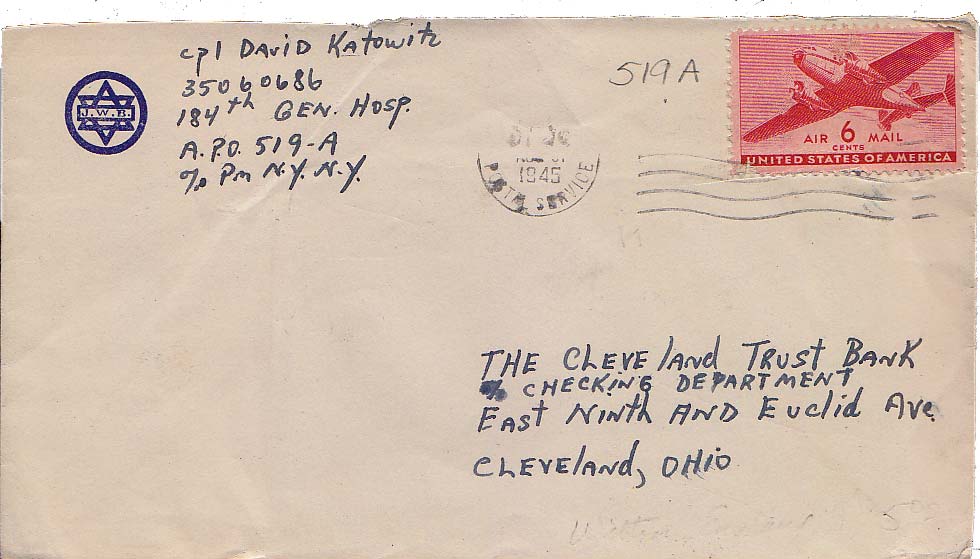 cpl DAViD KATOWITZ
35060686
184th GEN. HOSP.
A.P.O. 519-A
℅ Pm N.Y. N.Y.
J.W.B.
519 A
1945
SERVICE
AIR 6 MAIL
CENTS
UNITED STATES OF AMERICA
THE CLEVElAnd TRUST BANK
℅ CHECKiNG DEPARTMENT
EAst NiNth AND Euclid Ave.
CLEVElAnd, OHIO